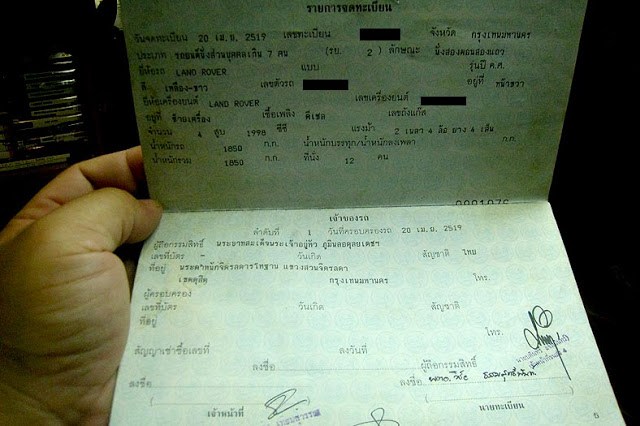 รายการจดทะเบียน
วันจดทะเบียน 20 เม.ย. 2519 เลขทะเบียน จังหวัด กรุงเทพมหานคร
ประเภท รถยนต์นั่งส่วนบุคคลเกิน 7 คน (รย. 2 ) ลักษณะ นั่งสองตอนสองแถว
ยี่ห้อรถ LAND ROVER แบบ รุ่นปี ค.ศ.
สี เหลือง-ขาว เลขตัวรถ อยู่ที่ หน้าขวา
ยี่ห้อเครื่องยนต์ LAND ROVER เลขเครื่องยนต์
อยู่ที่ ซ้ายเครื่อง เชื้อเพลิง ดีเซล เลขถังแก๊ส
จำนวน 4 สูบ 1998 ซีซี แรงม้า 2 เพลา 4 ล้อ ยาง 4 เส้น
น้ำหนักรถ 1850 ก.ก. น้ำหนักบรรทุก/น้ำหนักลงเพลา ก.ก.
น้ำหนักรวม 1850 ก.ก. ที่นั่ง 12 คน
เจ้าของรถ
ลำดับที่ 1 วันที่ครอบครองรถ 20 เม.ย. 2519
ผู้ถือกรรมสิทธิ์ พระบาทสมเด็จพระเจ้าอยู่หัว ภูมิพลอดุลยเดชฯ
เลขที่บัตร - วันเกิด สัญชาติ ไทย
ที่อยู่ พระตำหนักจิตรลดารโหฐาน แขวงสวนจิตรลดา
เขตดุสิต กรุงเทพมหานคร โทร.
ผู้ครอบครอง
เลขที่บัตร วันเกิด สัญชาติ
ที่อยู่
โทร.
สัญญาเช่าซื้อเลขที่ ลงวันที่ ผู้ถือกรรมสิทธิ์
ลงชื่อ ลงชื่อ
เจ้าหน้าที่ นายทะเบียน
5